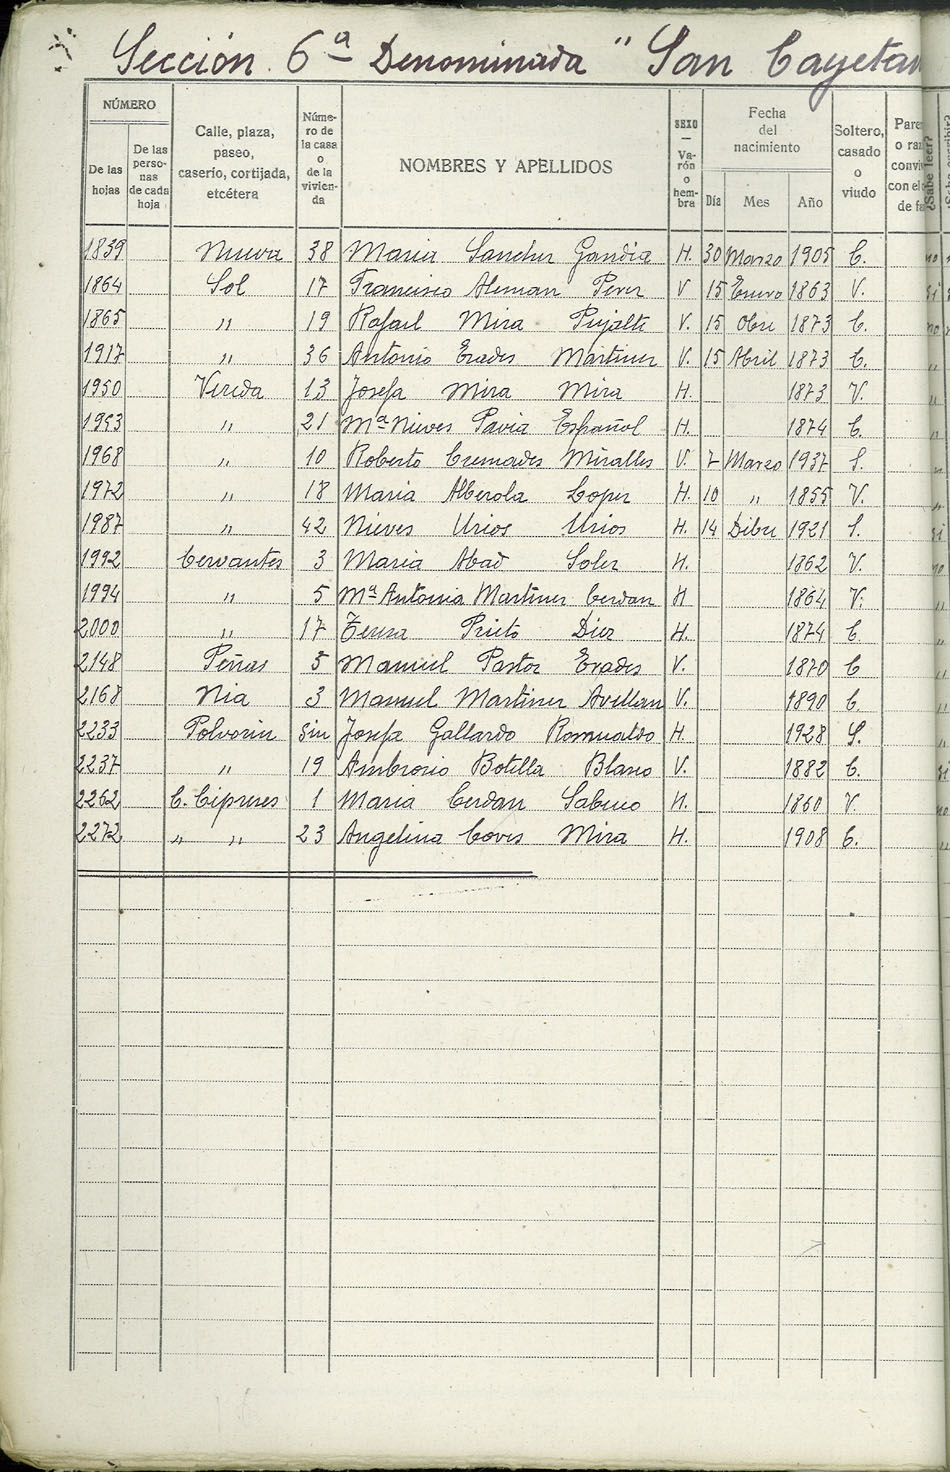 Sección 6ª Denominada " San Cayetan
NÚMERO
De las hojas
De las perso-nas de cada hoja
Calle, plaza, paseo, caserío, cortijada, etcétera
Núme-ro de la casa o de la vivien-da
NOMBRES Y APELLIDOS
SEXO — Va-rón o hem-bra
Fecha del nacimiento
Día Mes Año
Soltero, casado o viudo
Pare o ra conviv con el c de fa
¿Sabe leer?
1839 Nueva 38 Maria Sanchez Gandia H. 30 Marzo 1905 C. no
1864 Sol 17 Francisco Aleman Perez V 15 Enero 1863 V. si
1865 " 19 Rafael Mira Pujalte V. 15 Obre 1873 C. no
1917 " 36 Antonio Erades Martinez V. 15 Abril 1873 C. "
1950 Vereda 13 Josefa Mira Mira H. 1873 V. "
1953 " 21 Mª Nieves Pavia Español H. 1874 C. "
1968 " 10 Roberto Cremades Miralles V. 7 Marzo 1937 S. "
1972 " 18 Maria Alberola Lopez H. 10 " 1855 V. "
1987 " 42 Nieves Urios Urios H. 14 Dibre 1921 S. si
1992 Cervantes 3 Maria Abad Soler H. 1862 V. no
1994 " 5 Mª Antonia Martinez Cerdan H 1864 V. "
2000 " 17 Teresa Prieto Diez H. 1874 C "
2148 Peñas 5 Manuel Pastor Erades V. 1870 C "
2168 Nia 3 Manuel Martinez Avellan V. 1890 C. "
2233 Polvorin Sin Josefa Gallardo Romualdo H. 1928 S. "
2237 " 19 Ambrosio Botella Blano V. 1882 C. si
2262 C. Cipreses 1 Maria Cerdan Sabuco H. 1860 V. no
2272 " " 23 Angelina Coves Mira H. 1908 C. "